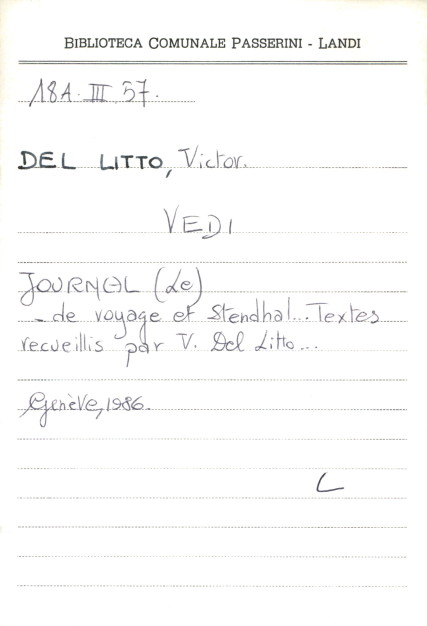 BIBLIOTECA COMUNALE PASSERINI - LANDI
18A. III. 57.
DEL LITTO, Victor.
VEDI
JOURNAL (Le)
- de voyage et Stendhal... Textes
recueillis par V. Del Litto...
Genève, 1986.
L